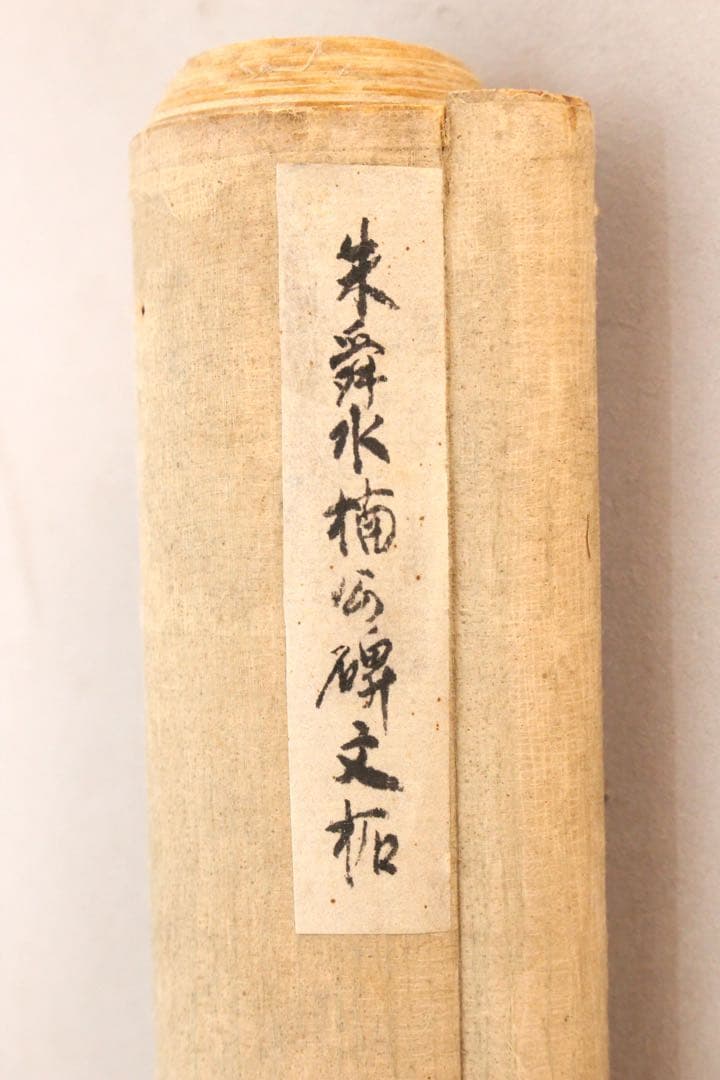 朱舜水楠公碑文柘